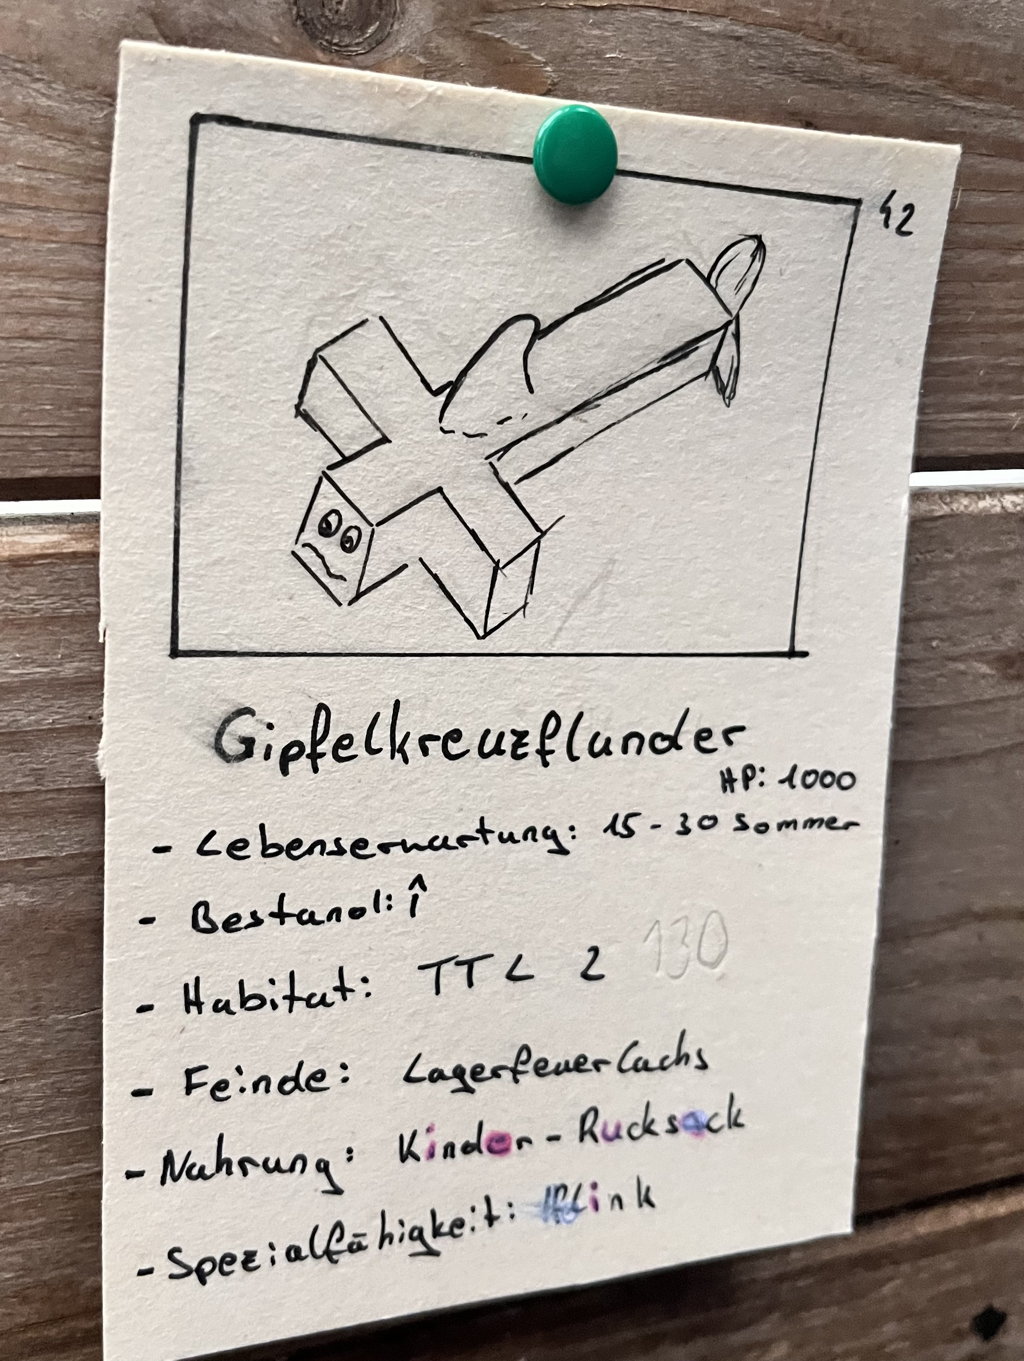 42
Gipfelkreuzflunder
HP: 1000
- Lebenserwartung: 15-30 Sommer
- Bestand: ↑
- Habitat: TTL 2 130
- Feinde: Lagerfeuerlachs
- Nahrung: Kinder-Rucksack
- Spezialfähigkeit: flink